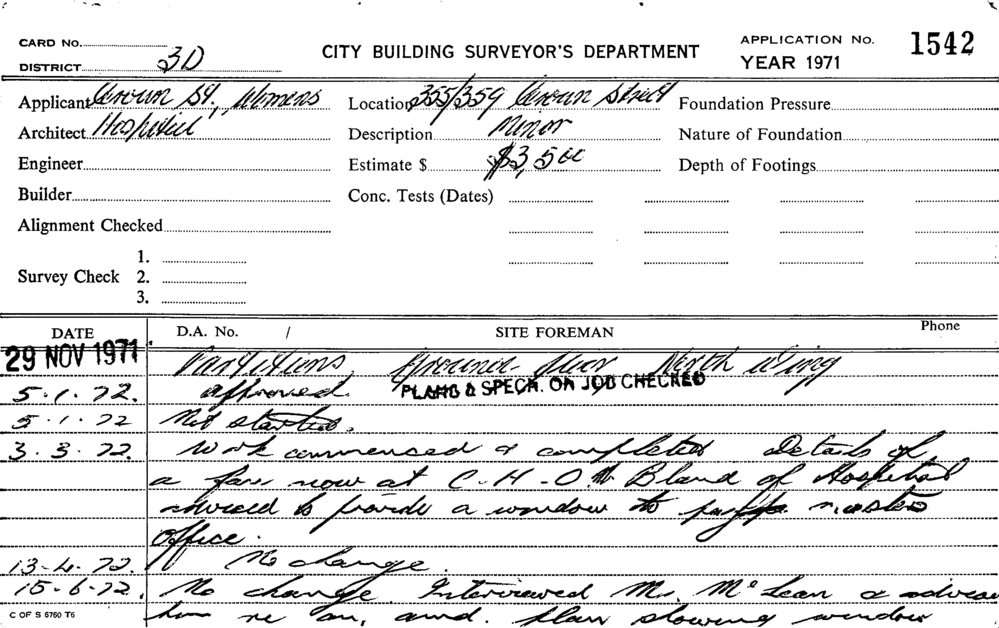 CARD No.
DISTRICT 3D
CITY BUILDING SURVEYOR'S DEPARTMENT
APPLICATION No. 1542
YEAR 1971
Applicant Crown St, Womens
Location 355/359 Crown Street
Foundation Pressure
Architect Hospital
Description Minor
Nature of Foundation
Engineer
Estimate $ $3,500
Depth of Footings
Builder
Conc. Tests (Dates)
Alignment Checked
Survey Check 1.
2.
3.
DATE D.A. No. / SITE FOREMAN Phone
29 NOV 1971 Partitions Ground floor North Wing
5.1.72. approved. PLANS & SPECN. ON JOB CHECKED
5.1.72 Not started.
3.3.72. Work commenced & completed Details of
a now at C.H.O. Bland of Hospital
advised to provide a window to
office.
13-4.72. No change.
15.6.72. No change. Interviewed Mr. McLean & advise
him re an, amd. plan showing window
C OF S 5760 T6